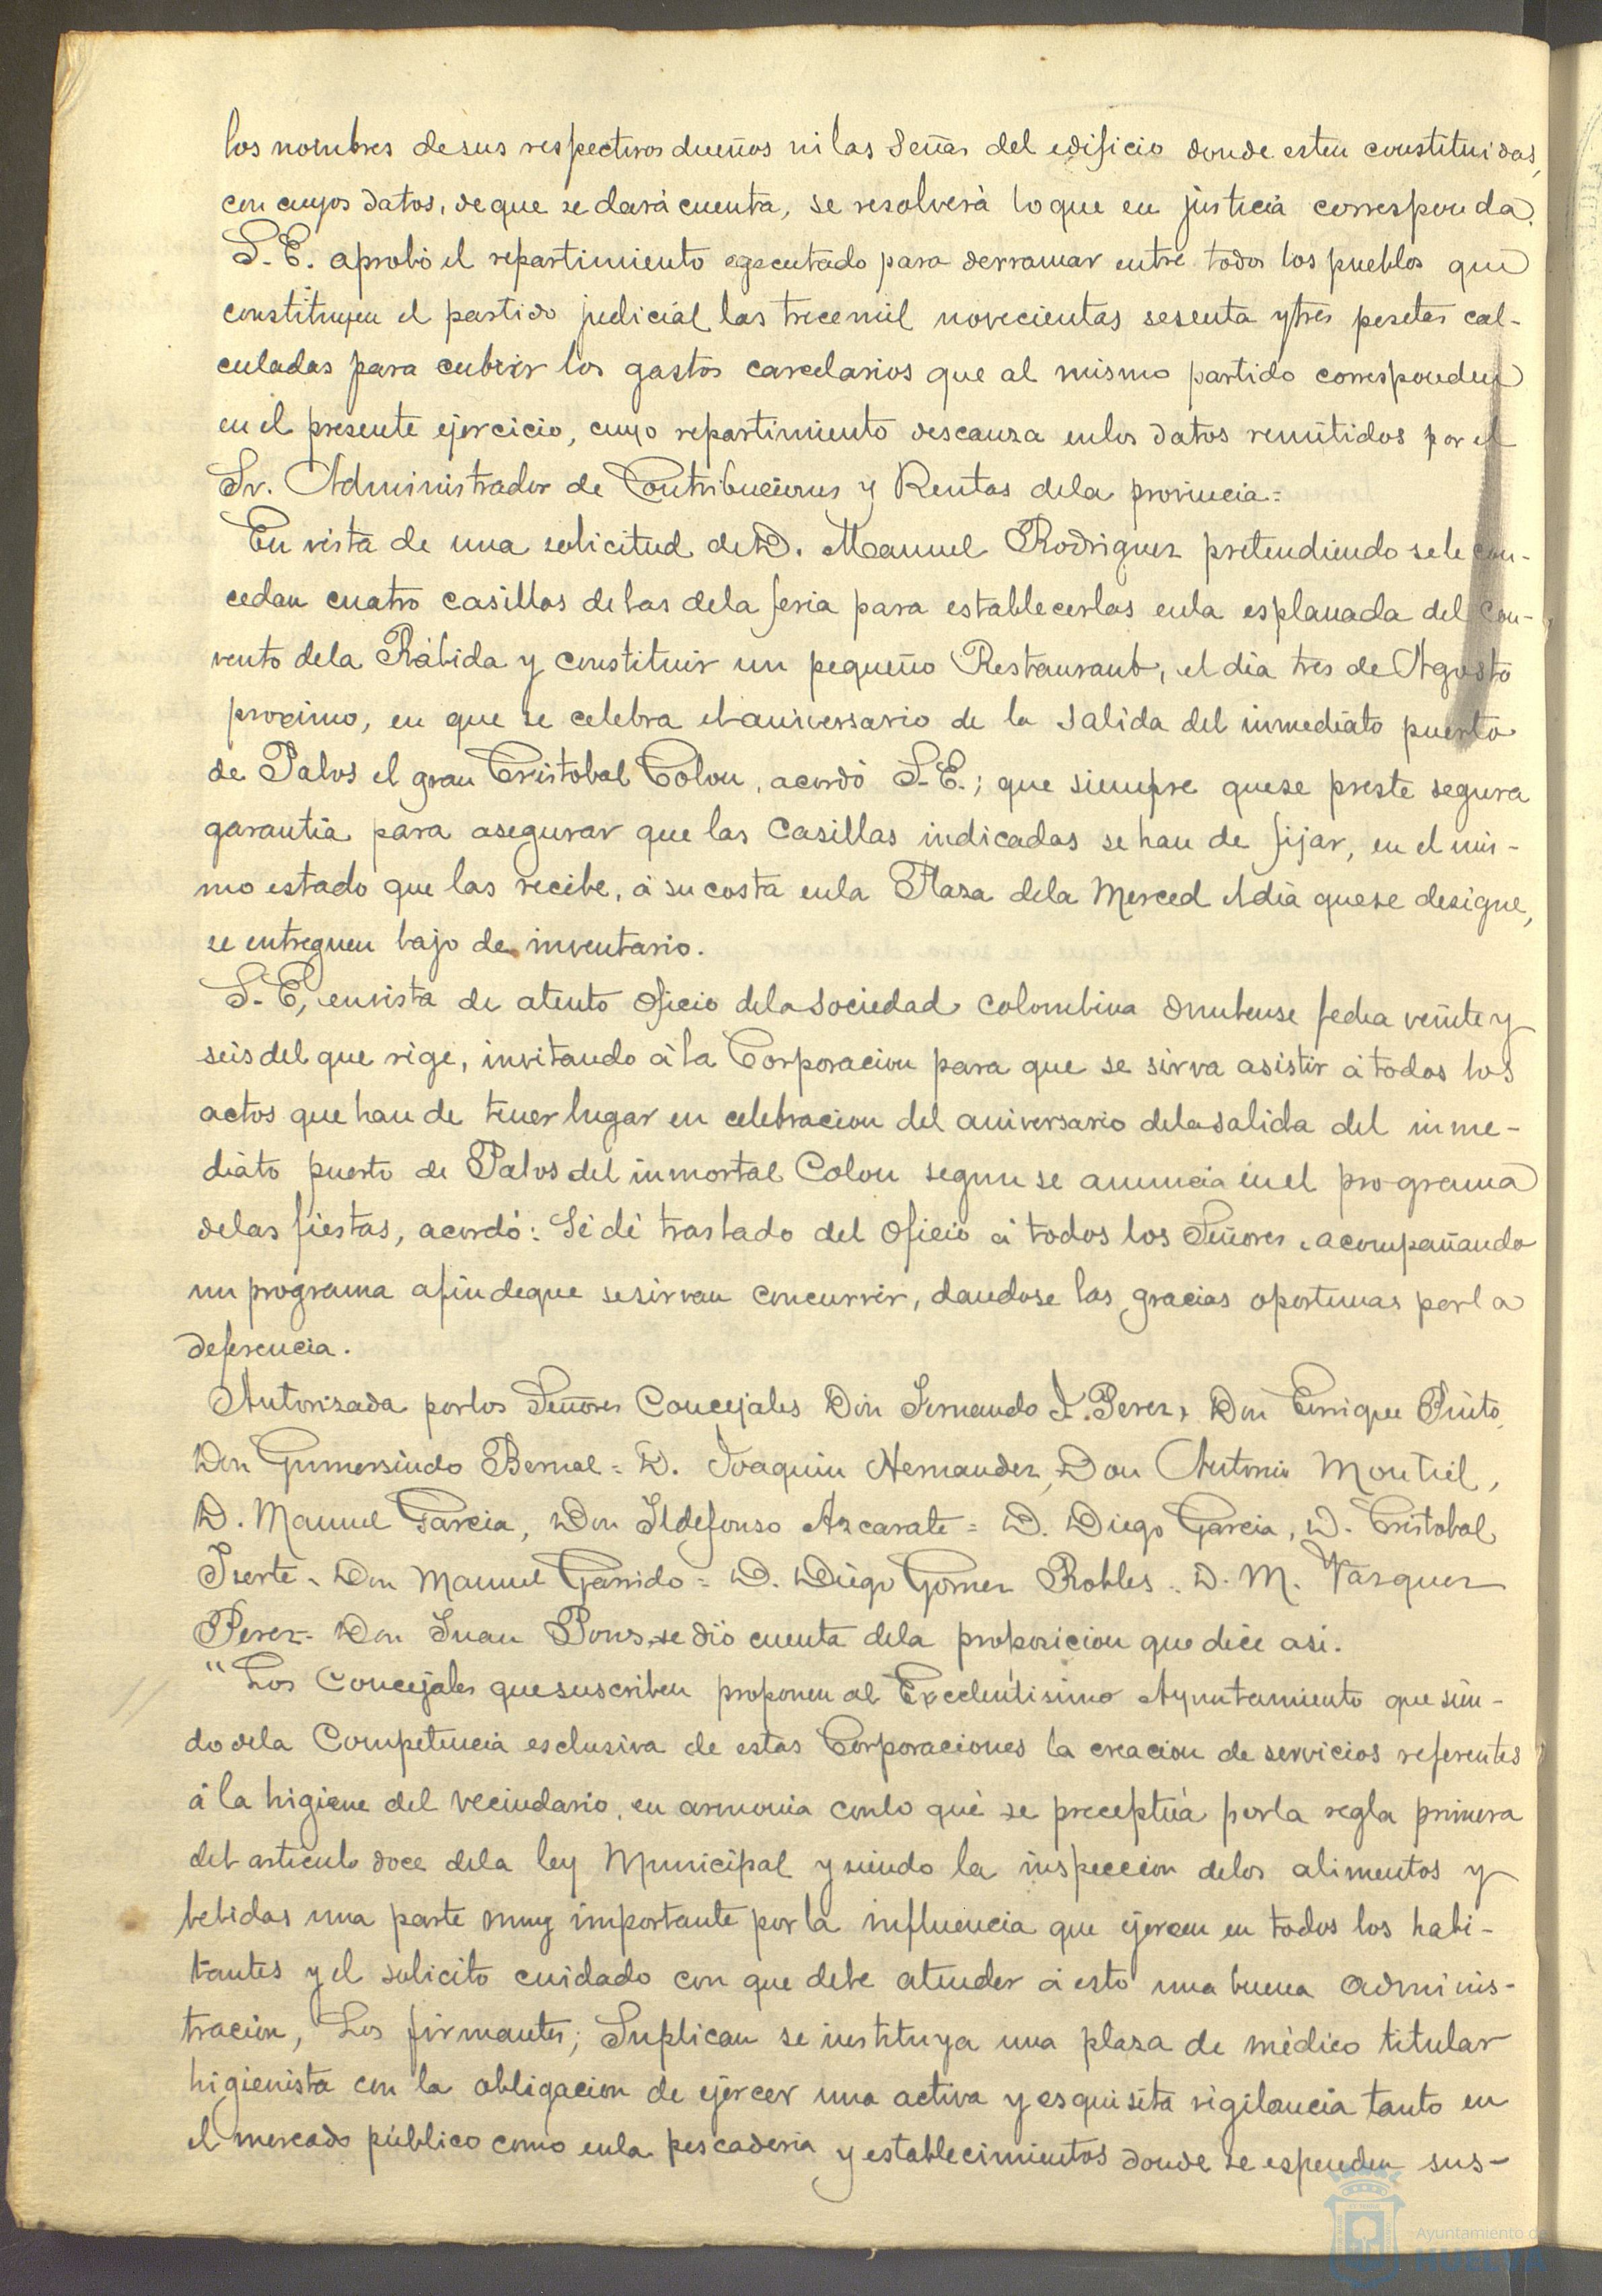 los nombres de sus respectivos dueños ni las señas del edificio donde esten constituidas,
con cuyos datos, de que se dará cuenta, se resolverá lo que en justicia corresponda.
S. E. aprobó el repartimiento egecutado para derramar entre todos los pueblos que
constituyen el partido judicial las trece mil novecientas sesenta y tres pesetas cal-
culadas para cubrir los gastos carcelarios que al mismo partido corresponden
en el presente ejercicio, cuyo repartimiento descanza en los datos remitidos por el
Sr. Administrador de Contribuciones y Rentas de la provincia=
En vista de una solicitud de D. Manuel Rodriguez pretendiendo se le con-
cedan cuatro casillas de las de la feria para establecerlas en la esplanada del Con-
vento de la Rábida y constituir un pequeño Restaurant, el dia tres de Agosto
procimo, en que se celebra el aniversario de la salida del inmediato puerto
de Palos el gran Cristobal Colon, acordó S. E.; que siempre que se preste segura
garantia para asegurar que las casillas indicadas se han de fijar, en el mis-
mo estado que las recibe, á su costa en la Plaza de la Merced el dia que se designe,
se entreguen bajo de inventario.
S. E, en vista de atento oficio de la Sociedad Colombina Onubense fecha veinte y
seis del que rige, invitando á la Corporacion para que se sirva asistir á todos los
actos que han de tener lugar en celebracion del aniversario de la salida del inme-
diato puerto de Palos del inmortal Colon segun se anuncia en el programa
de las fiestas, acordó: Se dé traslado del oficio á todos los Señores, acompañando
un programa afin de que se sirvan concurrir, dandose las gracias oportunas por la
deferencia.
Autorizada por los Señores Concejales Don Fernando I. Perez, Don Enrique Pinto,
Don Gumersindo Bernal= D. Joaquin Hernandez, Don Antonio Montiel,
D. Manuel Garcia, Don Ildefonso Azcarate= D. Diego Garcia, D. Cristobal
Iserte- Don Manuel Garrido= D. Diego Gomez Robles- D. M. Vazquez
Perez- Don Juan Pons, se dió cuenta de la proposicion que dice asi.
"Los Concejales que suscriben proponen al Excelentisimo Ayuntamiento que sien-
do de la Competencia esclusiva de estas Corporaciones la creacion de servicios referentes
á la higiene del vecindario, en armonia con lo que se preceptúa por la regla primera
del articulo doce de la ley Municipal y siendo la inspeccion de los alimentos y
bebidas una parte muy importante por la influencia que ejercen en todos los habi-
tantes y el solicito cuidado con que debe atender á esto una buena adminis-
tracion, Los firmantes; Suplican se instituya una plaza de médico titular
higienista con la obligacion de ejercer una activa y esquisita vigilancia tanto en
el mercado público como en la pescaderia y establecimientos donde se espenden sus-
Ayuntamiento de
HUELVA